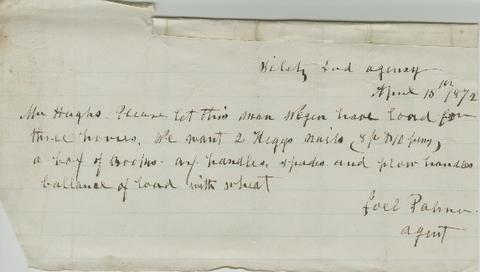 Siletz Ind agency
April 15th 1872
Mr Hughs. Please let this man Wagon have load for
three horses. We want 2 Keggs nails (8p & 10 peny)
a box of Brooms. ax handles, spades and plow handles
ballance of load with wheat
Joel Palmer
agent